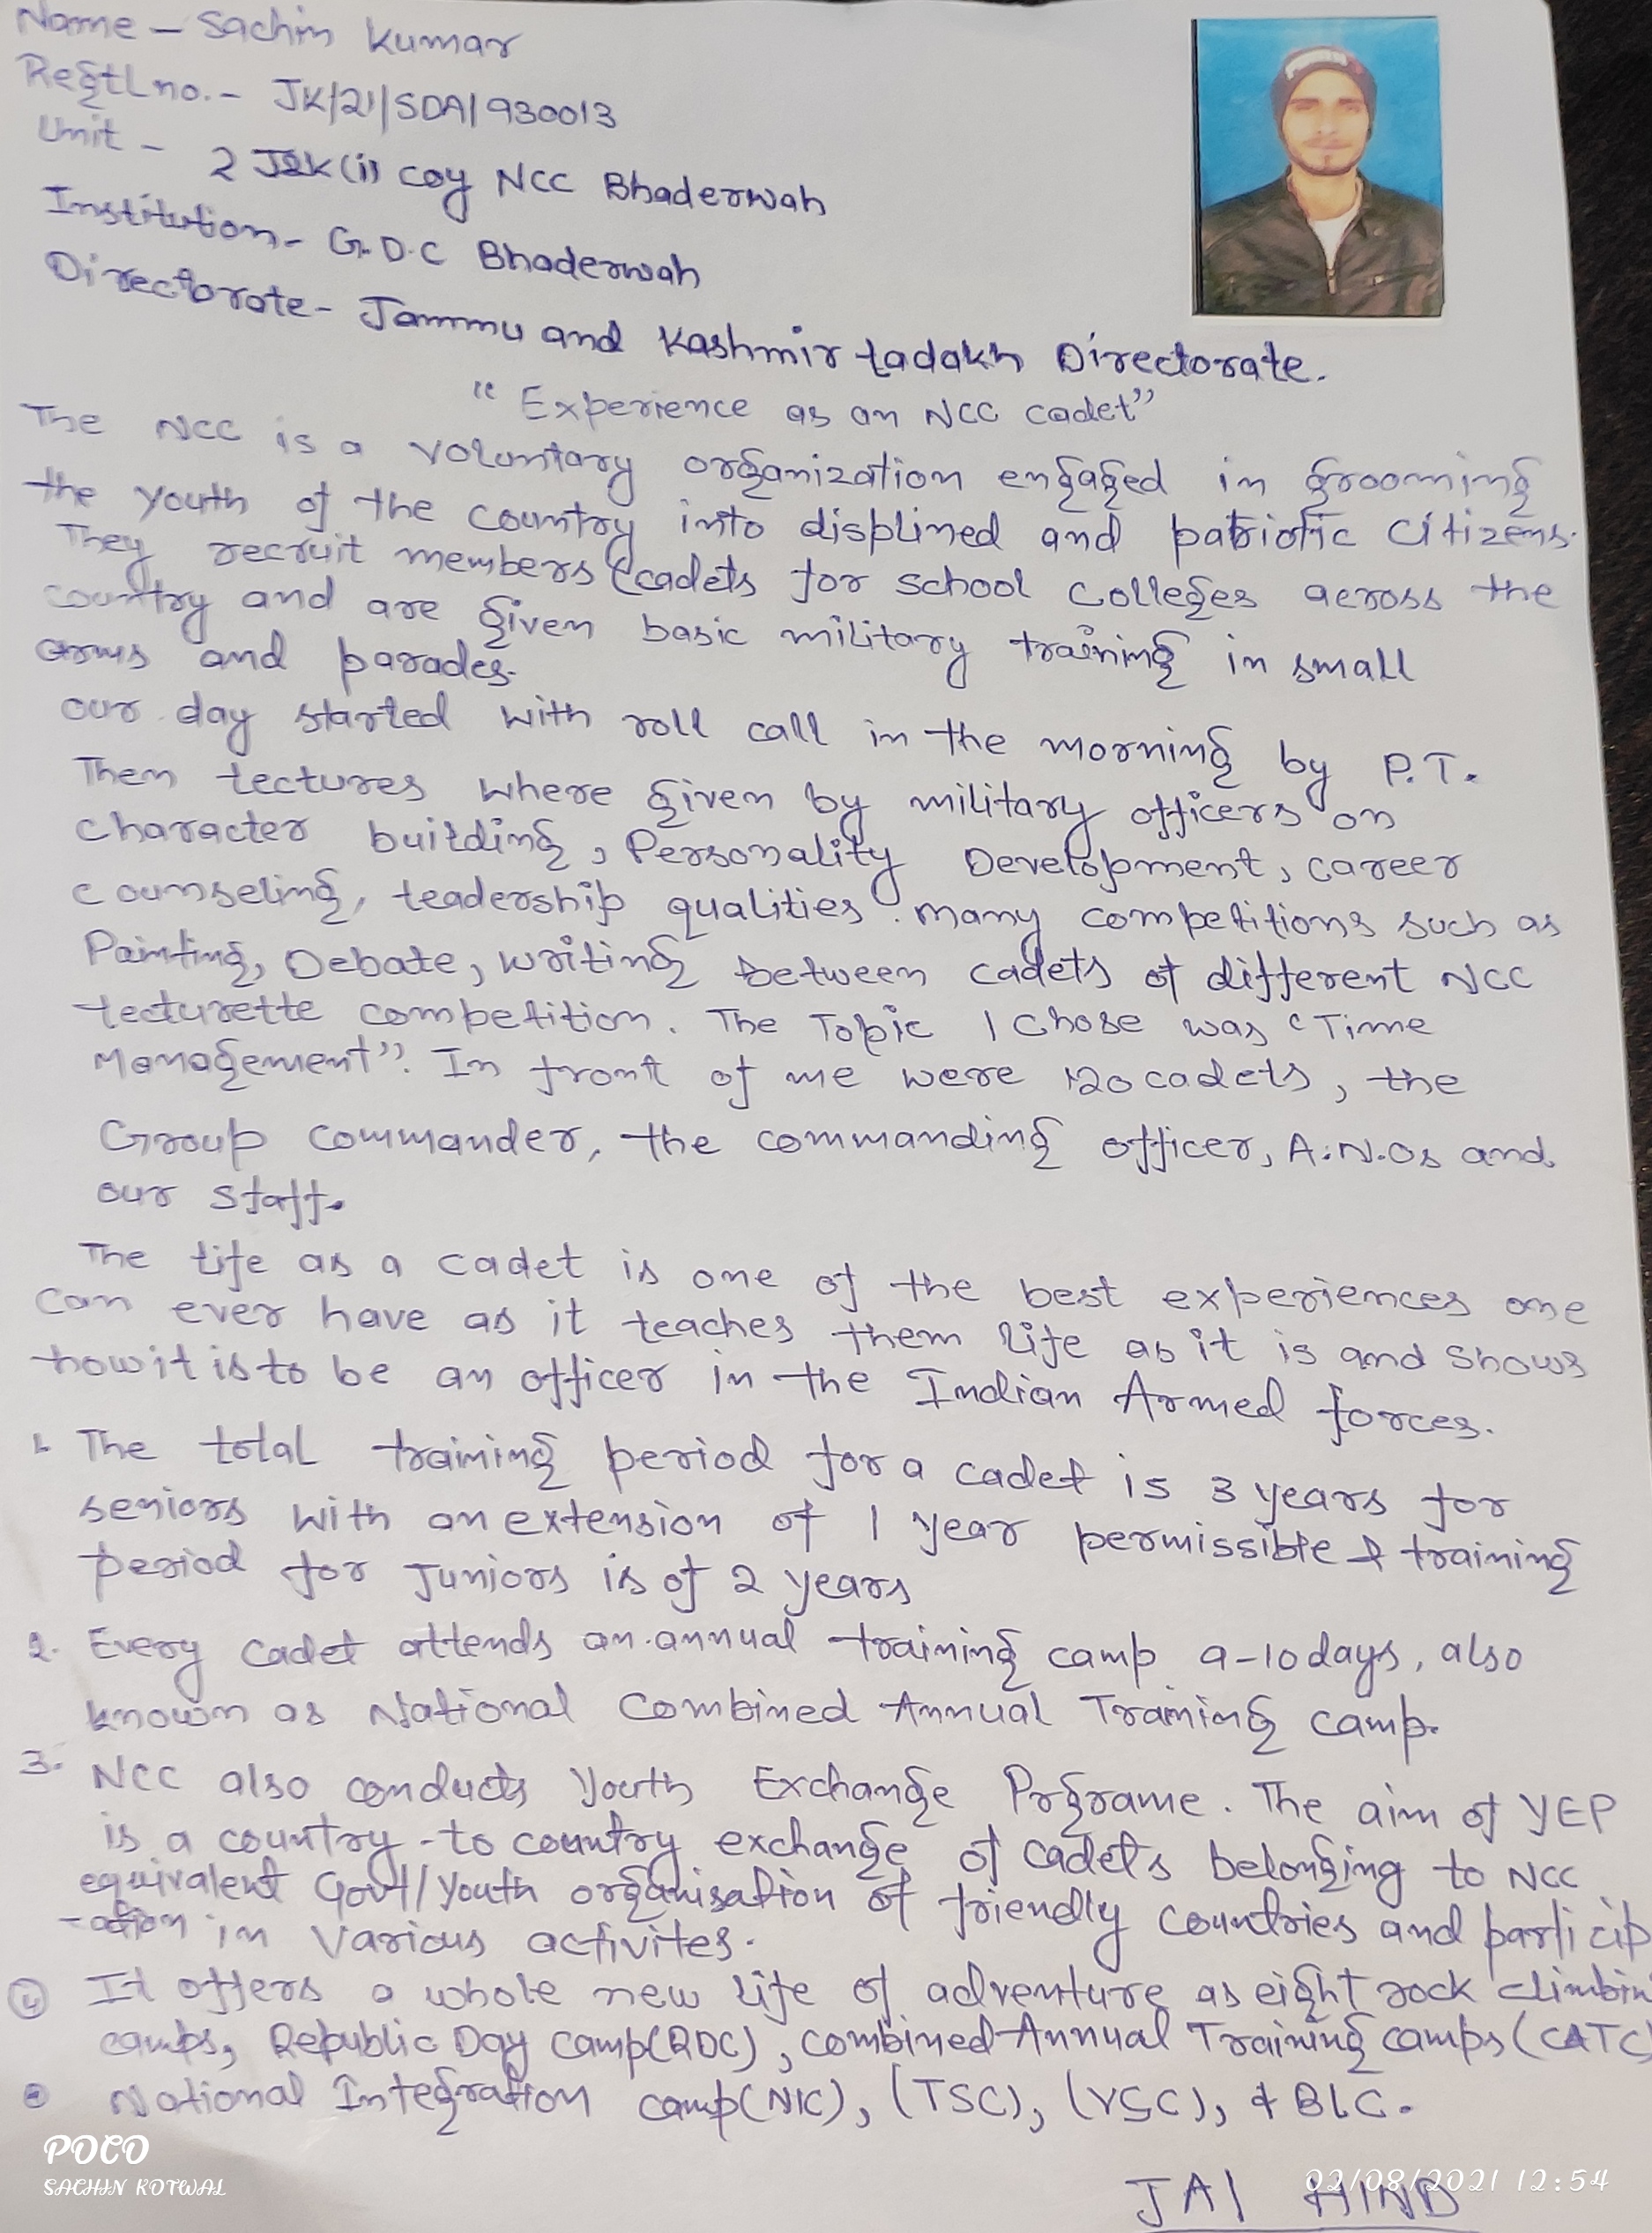 Name - Sachin Kumar
Regtl no. - JK/21/SDA/930013
Unit - 2 J&K (i) coy NCC Bhaderwah
Institution - G.D.C Bhaderwah
Directorate - Jammu and Kashmir Ladakh Directorate.
"Experience as an NCC cadet"
The NCC is a voluntary organization engaged in grooming
the youth of the country into displined and patriotic citizens.
They recruit members (cadets for school colleges across the
country and are given basic military training in small
arms and parades.
our day started with roll call in the morning by P.T.
Then lectures where given by military officers on
character building, Personality Development, career
counseling, leadership qualities. many competitions such as
Painting, Debate, writing between cadets of different NCC
lecturette competition. The Topic I chose was "Time
Management". In front of me were 120 cadets, the
Group commander, the commanding officer, A.N.Os and
our staff.
The life as a cadet is one of the best experiences one
can ever have as it teaches them life as it is and shows
how it is to be an officer in the Indian Armed forces.
1. The total training period for a cadet is 3 years for
seniors with an extension of 1 year permissible & training
period for Juniors is of 2 years
2. Every cadet attends an annual training camp 9-10 days, also
known as National Combined Annual Training camp.
3. NCC also conducts Youth Exchange Prgrame. The aim of YEP
is a country-to country exchange of cadets belonging to NCC
equivalent Govt/youth organisation of friendly countries and particip
-ation in various activites.
4 It offers a whole new life of adventure as eight rock climbin
camps, Republic Day camp(RDC), combined Annual Training camps (CATC)
National Integration camp(NIC), (TSC), (VSC), & BLC.
JAI HIND
POCO
SACHIN KOTWAL
02/08/2021 12:54